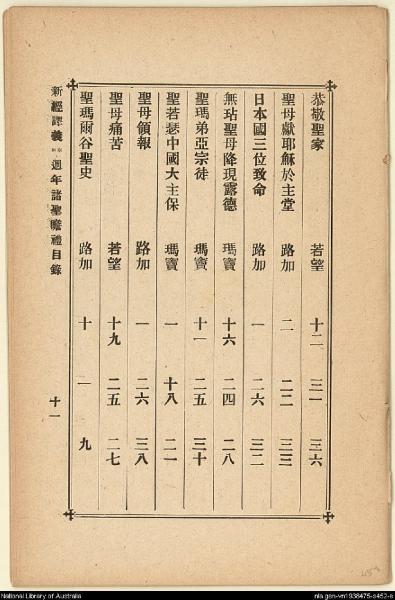 恭敬聖家 若望 十二 三一 三六
聖母獻耶穌於主堂 路加 二 二二 三三
日本國三位致命 路加 一 二六 三二
無玷聖母降現露德 瑪竇 十六 二四 二八
聖瑪弟亞宗徒 瑪竇 十一 二五 三十
聖若瑟中國大主保 瑪竇 一 十八 二一
聖母領報 路加 一 二六 三八
聖母痛苦 若望 十九 二五 二七
聖瑪爾谷聖史 路加 十 一 九
新經譯義 週年諸聖瞻禮目錄 十一
National Library of Australia
nla.gen-vn1938475-s452-e